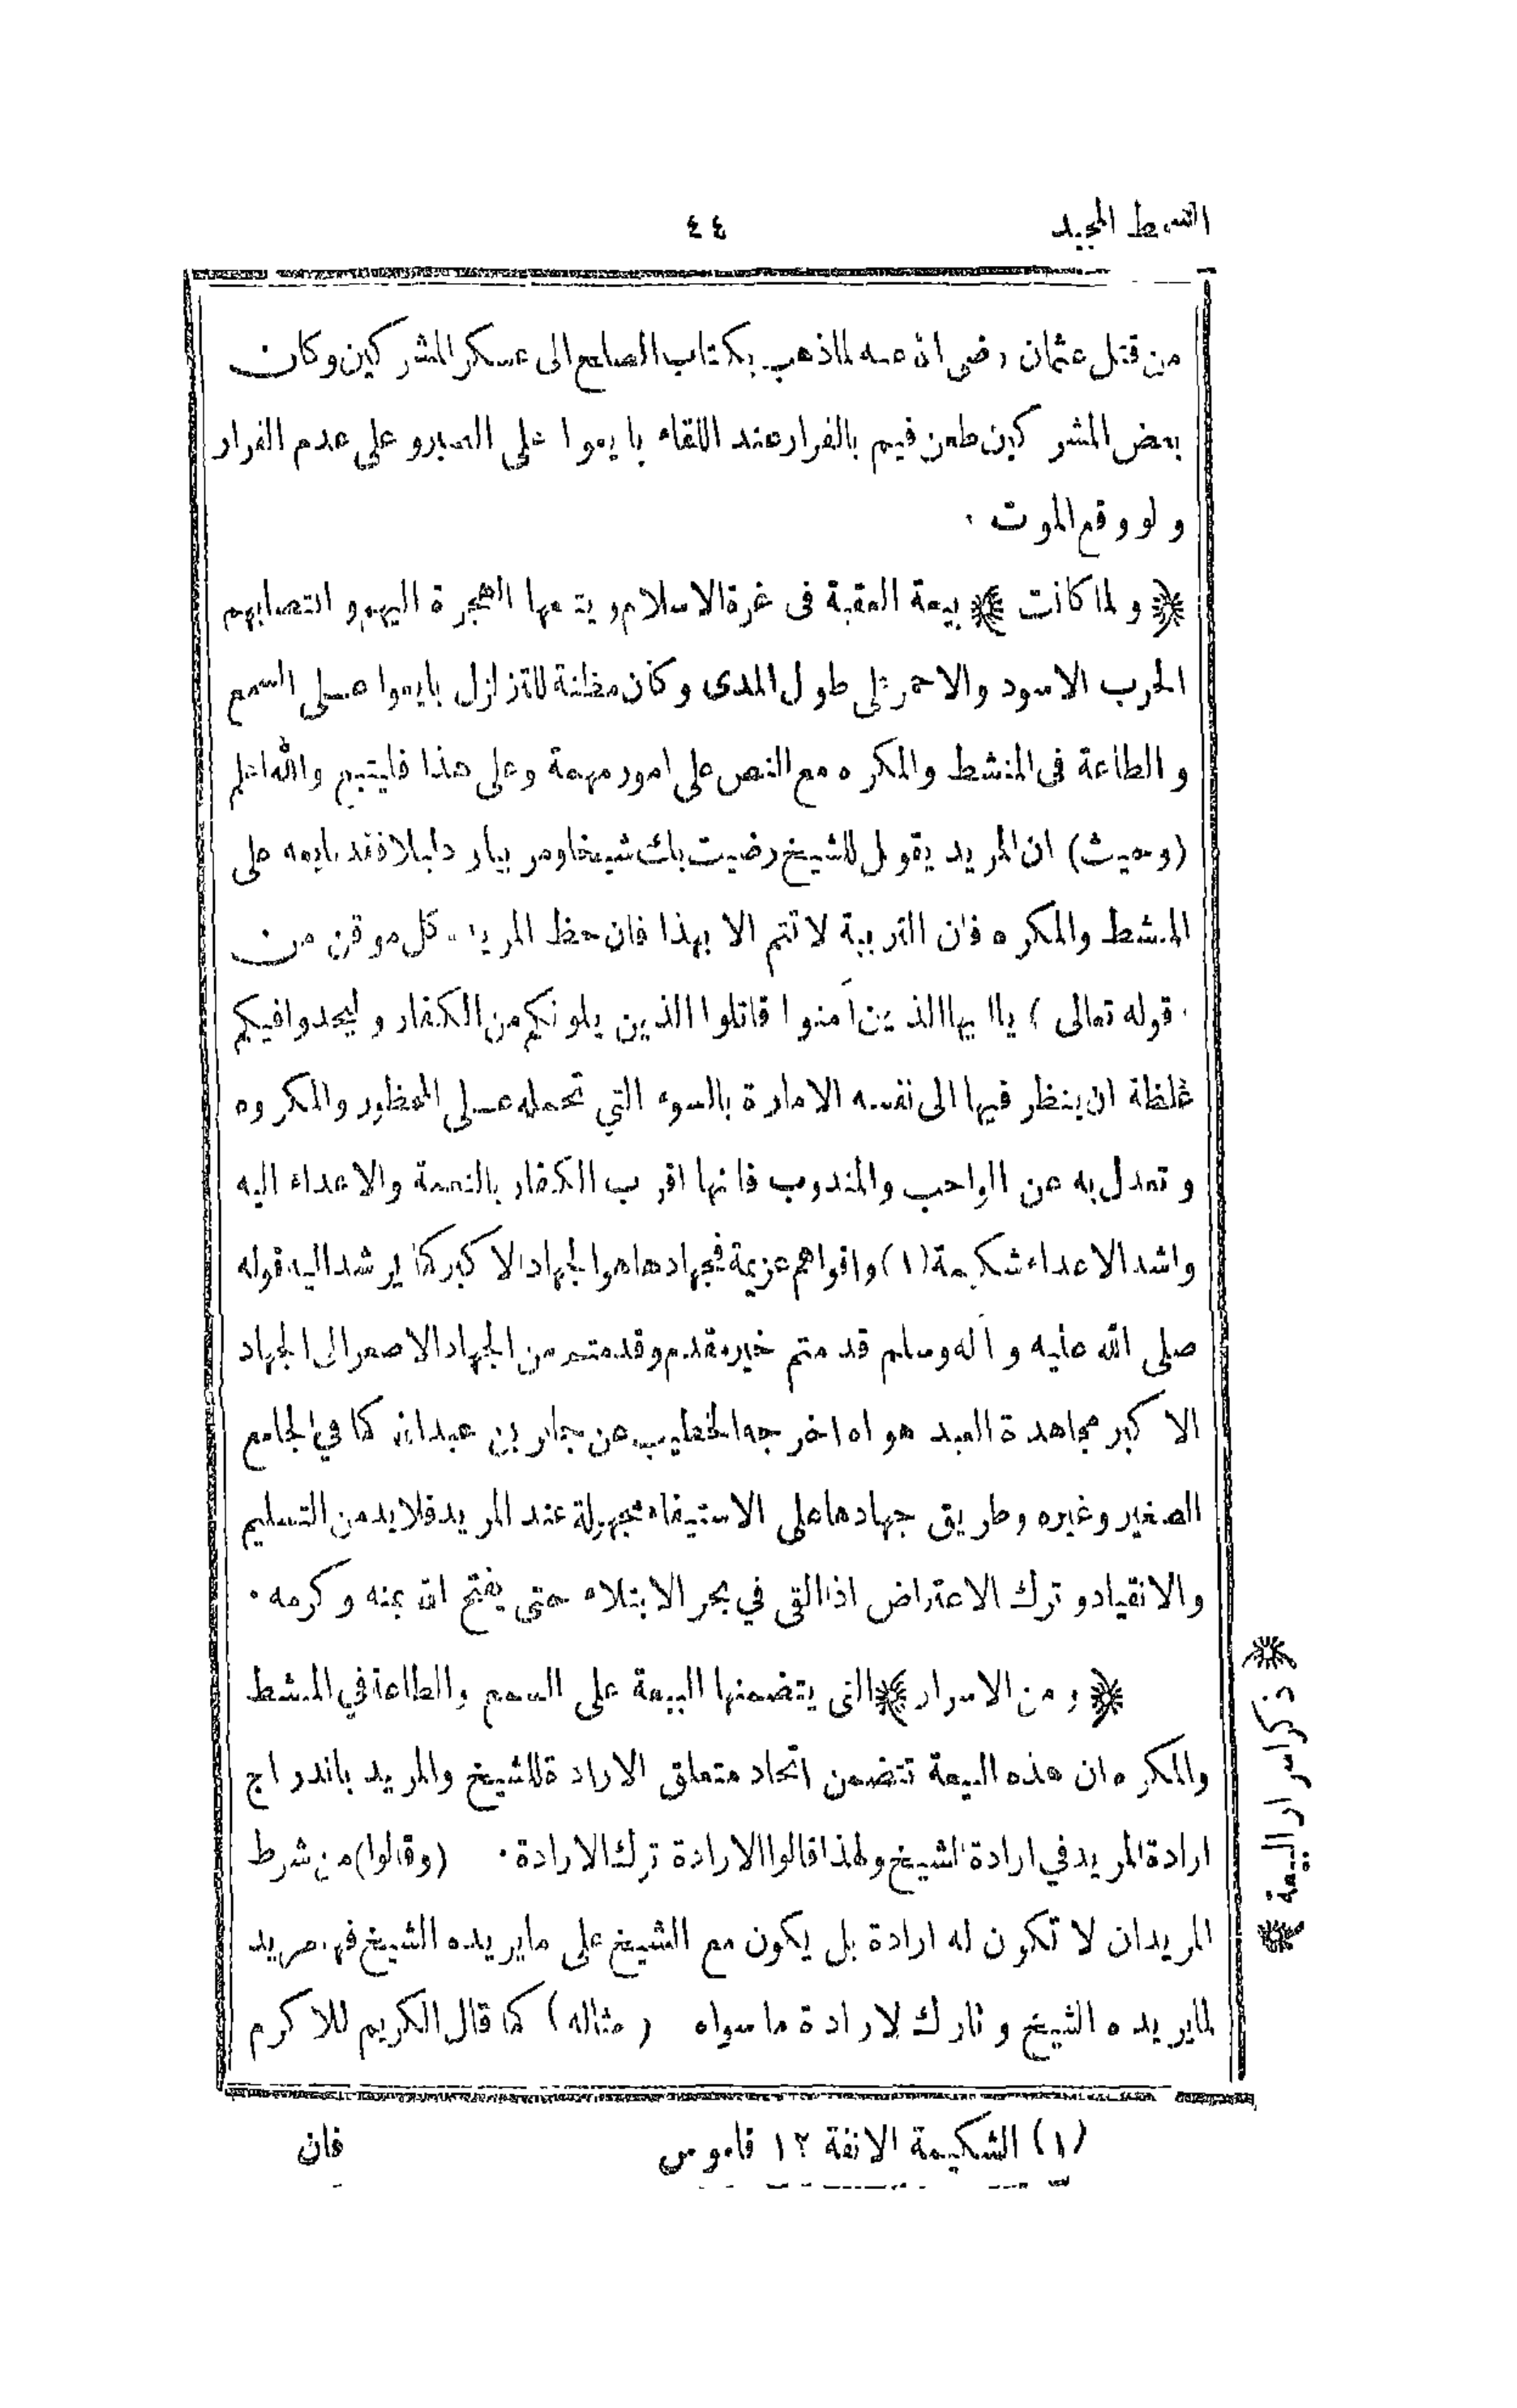 السمط المجيد ٤٤
من قتل عثمان رضى الله عنه لما ذهب بكتاب الصلح الى عسكر المشركين وكان
بعض المشركين طعن فيهم بالفرار عند اللقاء بايعوا على الصبر و على عدم الفرار
و لو وقع الموت ٠
﴿ و لما كانت ﴾ بيعة العقبة فى غرة الاسلام و يتبعها الهجرة اليهم و انتصابهم
الحرب الاسود والاحمر على طول المدى و كان مظنة للتزلزل بايعوا على السمع
و الطاعة فى المنشط والمكره مع النص على امور مهمة وعلى هذا فليتبع والله اعلم
(وحيث) ان المريد يقول للشيخ رضيت بك شيخا و مربيا و دليلا فقد بايعه على
المنشط والمكره فان التربية لا تتم الا بهذا فان حظ المريد كل موقن من
(قوله تعالى) يا ايها الذين آمنوا قاتلوا الذين يلونكم من الكفار و ليجدوا فيكم
غلظة ان ينظر فيها الى نفسه الامارة بالسوء التي تحمله على المحظور والمكروه
و تعدل به عن الواجب والمندوب فانها اقرب الكفار بالنعمة والاعداء اليه
واشد الاعداء شكيمة (١) و اقواهم عزيمة فجهادها هو الجهاد الاكبر كما يرشد اليه قوله
صلى الله عليه و آله وسلم قدمتم خير مقدم و قدمتم من الجهاد الاصغر الى الجهاد
الاكبر مجاهدة العبد هواه اخرجه الخطيب عن جابر بن عبدالله كما في الجامع
الصغير و غيره و طريق جهادها على الاستيفاء مجهولة عند المريد فلا بد من التسليم
والانقياد و ترك الاعتراض اذا القى في بحر الابتلاء حتى يفتح الله بمنه و كرمه ٠
﴿ و من الاسرار ﴾ التى يتضمنها البيعة على السمع والطاعة في المنشط
والمكره ان هذه البيعة تتضمن اتحاد متعلق الارادة للشيخ والمريد باندراج
ارادة المريد في ارادة الشيخ و لهذا قالوا الارادة ترك الارادة ٠ (و قالوا) من شرط
المريد ان لا تكون له ارادة بل يكون مع الشيخ على ما يريده الشيخ فهو مريد
لما يريده الشيخ و تارك لارادة ما سواه (مثاله) كما قال الكريم للاكرم
﴿ ذكر اسرار البيعة ﴾
(١) الشكيمة الانفة ١٢ قاموس
فان